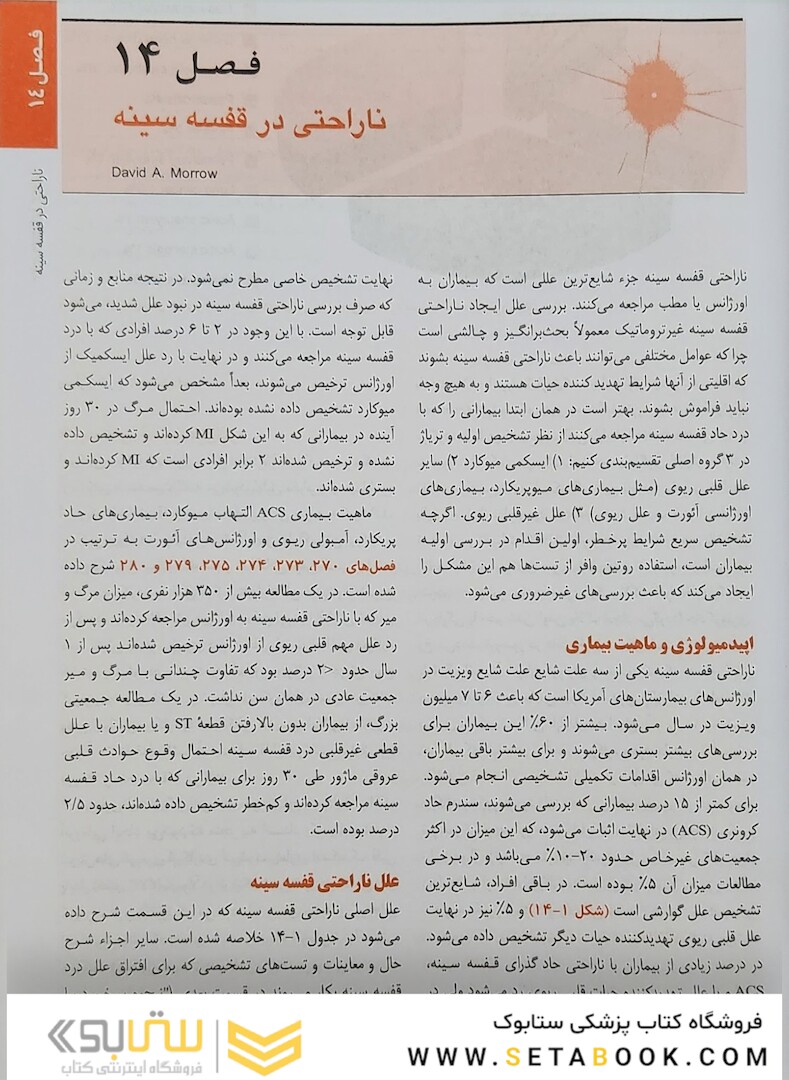 فصل ۱۴
ناراحتی در قفسه سینه
فصل ۱۴
ناراحتی در قفسه سینه
David A. Morrow
ناراحتی قفسه سینه جزء شایع‌ترین عللی است که بیماران به
اورژانس یا مطب مراجعه می‌کنند. بررسی علل ایجاد ناراحتی
قفسه سینه غیرتروماتیک معمولاً بحث‌برانگیز و چالشی است
چرا که عوامل مختلفی می‌توانند باعث ناراحتی قفسه سینه بشوند
که اقلیتی از آنها شرایط تهدید کننده حیات هستند و به هیچ وجه
نباید فراموش بشوند. بهتر است در همان ابتدا بیمارانی را که با
درد حاد قفسه سینه مراجعه می‌کنند از نظر تشخیص اولیه و تریاژ
در ۳ گروه اصلی تقسیم‌بندی کنیم: ۱) ایسکمی میوکارد ۲) سایر
علل قلبی ریوی (مثل بیماری‌های میوپریکارد، بیماری‌های
اورژانسی آئورت و علل ریوی) ۳) علل غیرقلبی ریوی. اگرچه
تشخیص سریع شرایط پرخطر، اولین اقدام در بررسی اولیه
بیماران است، استفاده روتین وافر از تست‌ها هم این مشکل را
ایجاد می‌کند که باعث بررسی‌های غیرضروری می‌شود.
اپیدمیولوژی و ماهیت بیماری
ناراحتی قفسه سینه یکی از سه علت شایع علت شایع ویزیت در
اورژانس‌های بیمارستان‌های آمریکا است که باعث ۶ تا ۷ میلیون
ویزیت در سال می‌شود. بیشتر از ۶۰٪ این بیماران برای
بررسی‌های بیشتر بستری می‌شوند و برای بیشتر باقی بیماران،
در همان اورژانس اقدامات تکمیلی تشخیصی انجام می‌شود.
برای کمتر از ۱۵ درصد بیمارانی که بررسی می‌شوند، سندرم حاد
کرونری (ACS) در نهایت اثبات می‌شود، که این میزان در اکثر
جمعیت‌های غیرخاص حدود ۲۰-۱۰٪ می‌باشد و در برخی
مطالعات میزان آن ۵٪ بوده است. در باقی افراد، شایع‌ترین
تشخیص علل گوارشی است (شکل ۱-۱۴) و ۵٪ نیز در نهایت
علل قلبی ریوی تهدیدکننده حیات دیگر تشخیص داده می‌شود.
در درصد زیادی از بیماران با ناراحتی حاد گذرای قفسه سینه،
نهایت تشخیص خاصی مطرح نمی‌شود. در نتیجه منابع و زمانی
که صرف بررسی ناراحتی قفسه سینه در نبود علل شدید، می‌شود
قابل توجه است. با این وجود در ۲ تا ۶ درصد افرادی که با درد
قفسه سینه مراجعه می‌کنند و در نهایت با رد علل ایسکمیک از
اورژانس ترخیص می‌شوند، بعداً مشخص می‌شود که ایسکمی
میوکارد تشخیص داده نشده بوده‌اند. احتمال مرگ در ۳۰ روز
آینده در بیمارانی که به این شکل MI کرده‌اند و تشخیص داده
نشده و ترخیص شده‌اند ۲ برابر افرادی است که MI کرده‌اند و
بستری شده‌اند.
ماهیت بیماری ACS التهاب میوکارد، بیماری‌های حاد
پریکارد، آمبولی ریوی و اورژانس‌های آئورت به ترتیب در
فصل‌های ۲۷۰، ۲۷۳، ۲۷۴، ۲۷۵، ۲۷۹ و ۲۸۰ شرح داده
شده است. در یک مطالعه بیش از ۳۵۰ هزار نفری، میزان مرگ و
میر که با ناراحتی قفسه سینه به اورژانس مراجعه کرده‌اند و پس از
رد علل مهم قلبی ریوی از اورژانس ترخیص شده‌اند پس از ۱
سال حدود <۲ درصد بود که تفاوت چندانی با مرگ و میر
جمعیت عادی در همان سن نداشت. در یک مطالعه جمعیتی
بزرگ، از بیماران بدون بالارفتن قطعهٔ ST و یا بیماران با علل
قطعی غیرقلبی درد قفسه سینه احتمال وقوع حوادث قلبی
عروقی ماژور طی ۳۰ روز برای بیمارانی که با درد حاد قفسه
سینه مراجعه کرده‌اند و کم‌خطر تشخیص داده شده‌اند، حدود ۲/۵
درصد بوده است.
علل ناراحتی قفسه سینه
علل اصلی ناراحتی قفسه سینه که در این قسمت شرح داده
می‌شود در جدول ۱-۱۴ خلاصه شده است. سایر اجزاء شرح
حال و معاینات و تست‌های تشخیصی که برای افتراق علل درد
فروشگاه کتاب پزشکی ستابوک
WWW.SETABOOK.COM
ستابوک
فروشگاه اینترنتی کتاب